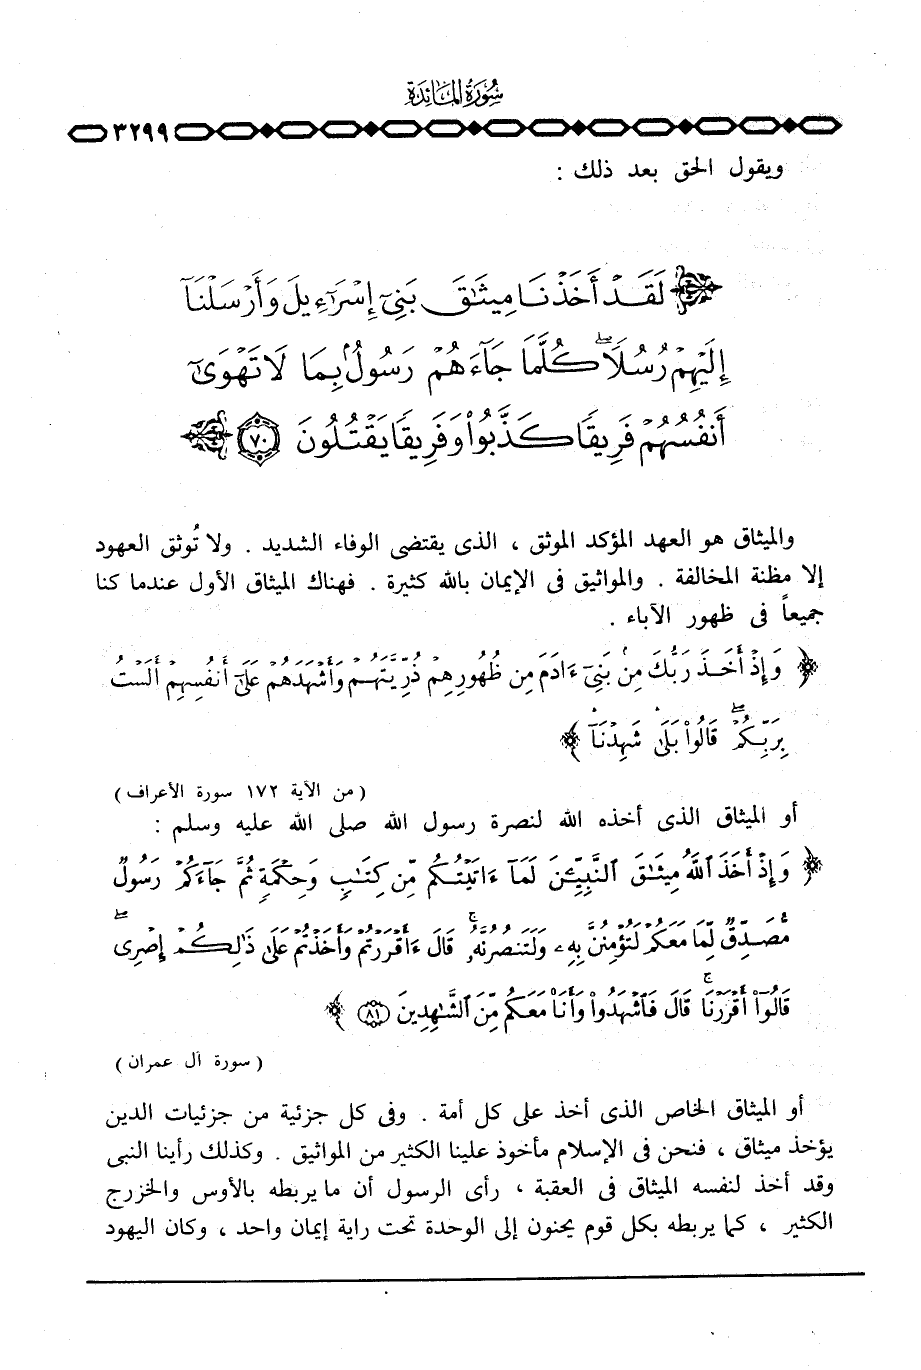 سُورَةُ المَائِدَةِ
٣٢٩٩
ويقول الحق بعد ذلك :
لَقَدْ أَخَذْنَا مِيثَٰقَ بَنِىٓ إِسْرَٰٓءِيلَ وَأَرْسَلْنَآ
إِلَيْهِمْ رُسُلًا ۖ كُلَّمَا جَآءَهُمْ رَسُولٌۢ بِمَا لَا تَهْوَىٰٓ
أَنفُسُهُمْ فَرِيقًا كَذَّبُوا۟ وَفَرِيقًا يَقْتُلُونَ ٧٠
والميثاق هو العهد المؤكد الموثق ، الذى يقتضى الوفاء الشديد . ولا تُوثق العهود
إلا مظنة المخالفة . والمواثيق فى الإيمان بالله كثيرة . فهناك الميثاق الأول عندما كنا
جميعاً فى ظهور الآباء .
﴿ وَإِذْ أَخَذَ رَبُّكَ مِنۢ بَنِىٓ ءَادَمَ مِن ظُهُورِهِمْ ذُرِّيَّتَهُمْ وَأَشْهَدَهُمْ عَلَىٰٓ أَنفُسِهِمْ أَلَسْتُ
بِرَبِّكُمْ ۖ قَالُوا۟ بَلَىٰ ۛ شَهِدْنَآ ۛ ﴾
( من الآية ١٧٢ سورة الأعراف )
أو الميثاق الذى أخذه الله لنصرة رسول الله صلى الله عليه وسلم :
﴿ وَإِذْ أَخَذَ ٱللَّهُ مِيثَٰقَ ٱلنَّبِيِّۦنَ لَمَآ ءَاتَيْتُكُم مِّن كِتَٰبٍ وَحِكْمَةٍ ثُمَّ جَآءَكُمْ رَسُولٌ
مُّصَدِّقٌ لِّمَا مَعَكُمْ لَتُؤْمِنُنَّ بِهِۦ وَلَتَنصُرُنَّهُۥ ۚ قَالَ ءَأَقْرَرْتُمْ وَأَخَذْتُمْ عَلَىٰ ذَٰلِكُمْ إِصْرِى ۖ
قَالُوٓا۟ أَقْرَرْنَا ۚ قَالَ فَٱشْهَدُوا۟ وَأَنَا۠ مَعَكُم مِّنَ ٱلشَّٰهِدِينَ ٨١ ﴾
( سورة آل عمران )
أو الميثاق الخاص الذى أخذ على كل أمة . وفى كل جزئية من جزئيات الدين
يؤخذ ميثاق ، فنحن فى الإسلام مأخوذ علينا الكثير من المواثيق . وكذلك رأينا النبى
وقد أخذ لنفسه الميثاق فى العقبة ، رأى الرسول أن ما يربطه بالأوس والخزرج
الكثير ، كما يربطه بكل قوم يحنون إلى الوحدة تحت راية إيمان واحد ، وكان اليهود